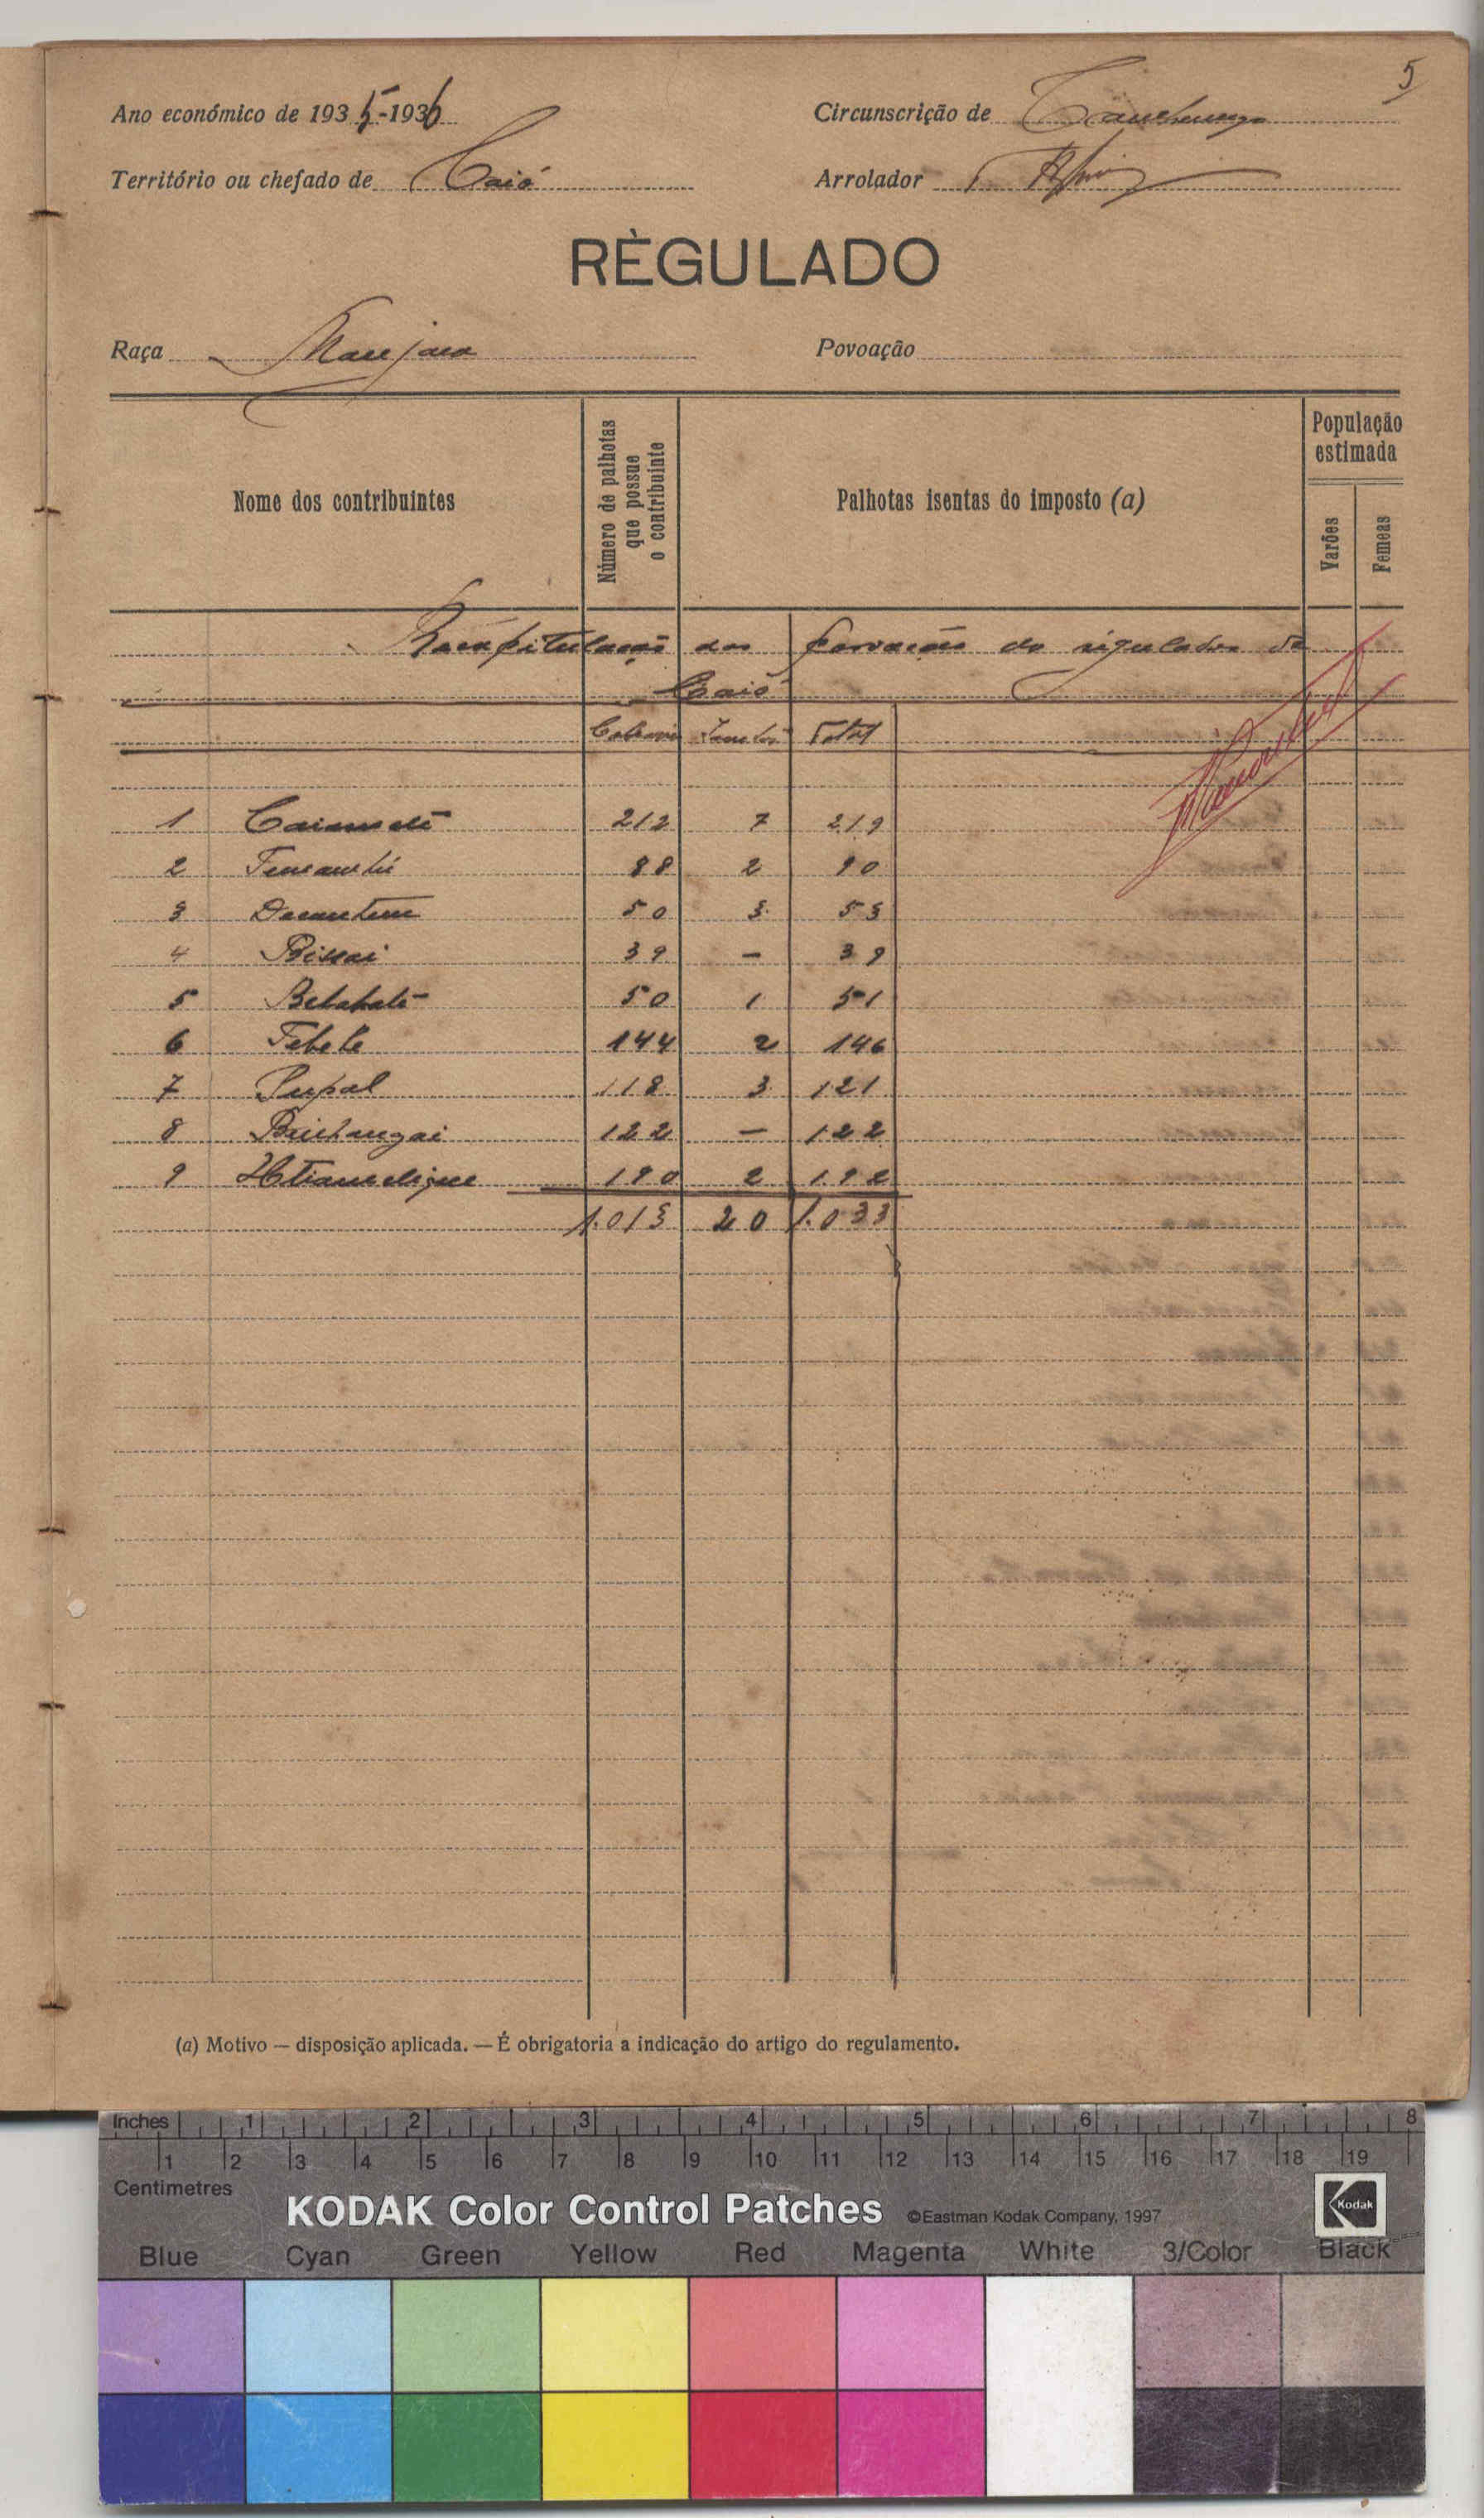 5
Ano económico de 1935-1936 Circunscrição de
Território ou chefado de Caió Arrolador
RÈGULADO
Raça Manjaca Povoação
Nome dos contribuintes
Número de palhotas que possue o contribuinte
Palhotas isentas do imposto (a)
População estimada
Varões
Femeas
Recapitulação das povoações do regulado de
Caió
Total
1 212 7 219
2 88 2 90
3 50 3 53
4 Bissai 39 — 39
5 Betabate 50 1 51
6 Tebebe 144 2 146
7 Pupal 118 3 121
8 122 — 122
9 190 2 192
1.013 20 1.033
(a) Motivo — disposição aplicada. — É obrigatoria a indicação do artigo do regulamento.
Inches 1 2 3 4 5 6 7 8
1 2 3 4 5 6 7 8 9 10 11 12 13 14 15 16 17 18 19
Centimetres
KODAK Color Control Patches ©Eastman Kodak Company, 1997 Kodak
Blue Cyan Green Yellow Red Magenta White 3/Color Black